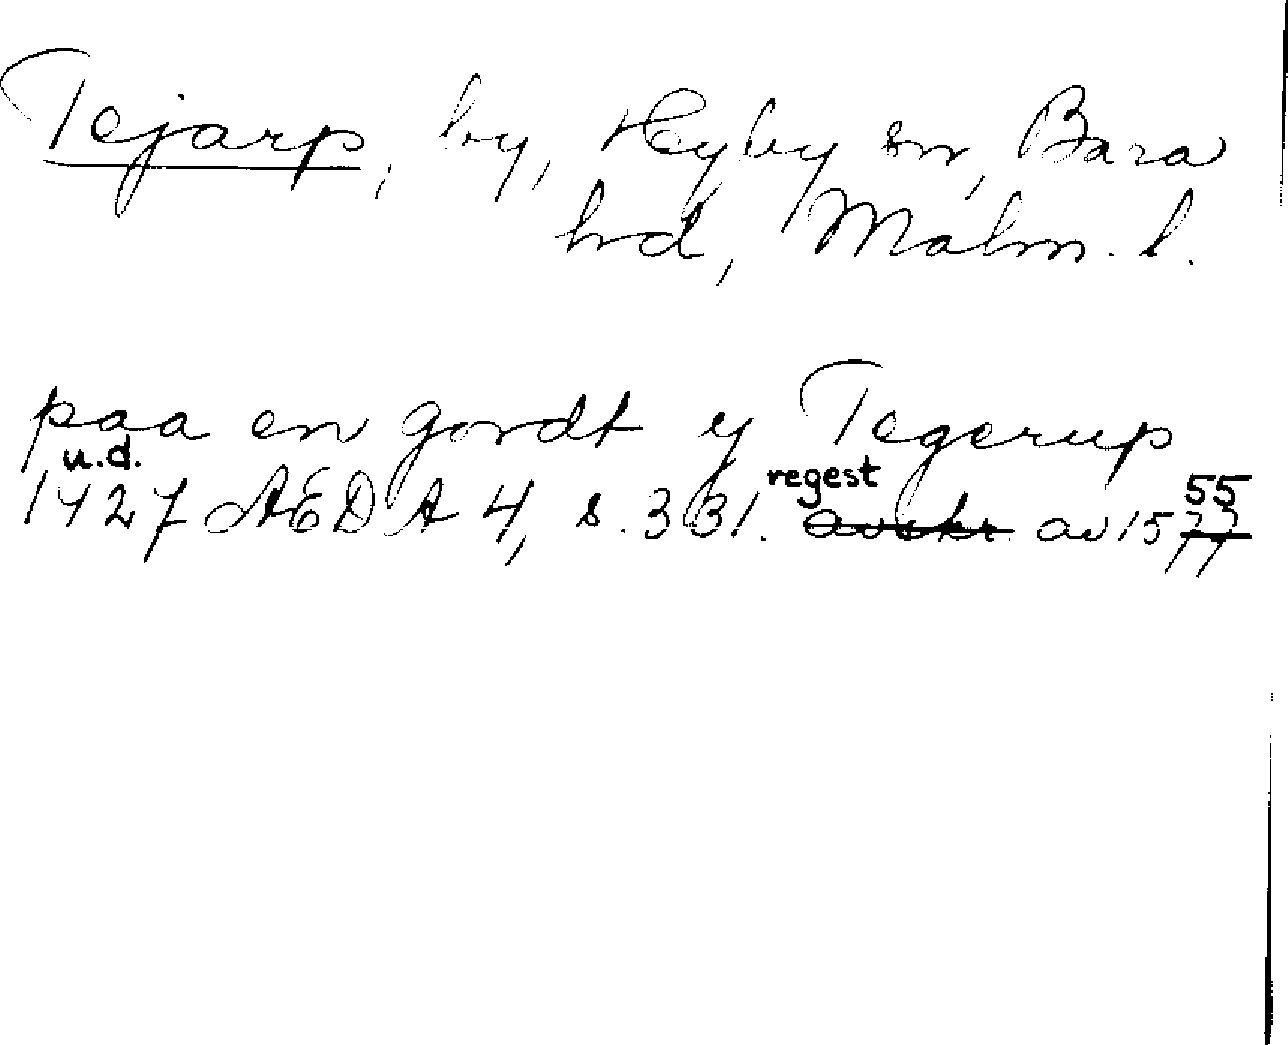 Tejarp, by, Hyby sn, Bara
hd, Malm. l.
paa en gordt y Tegerup
u.d. regest 55
1427 ÆDA 4, s. 331. avskr. av 1577